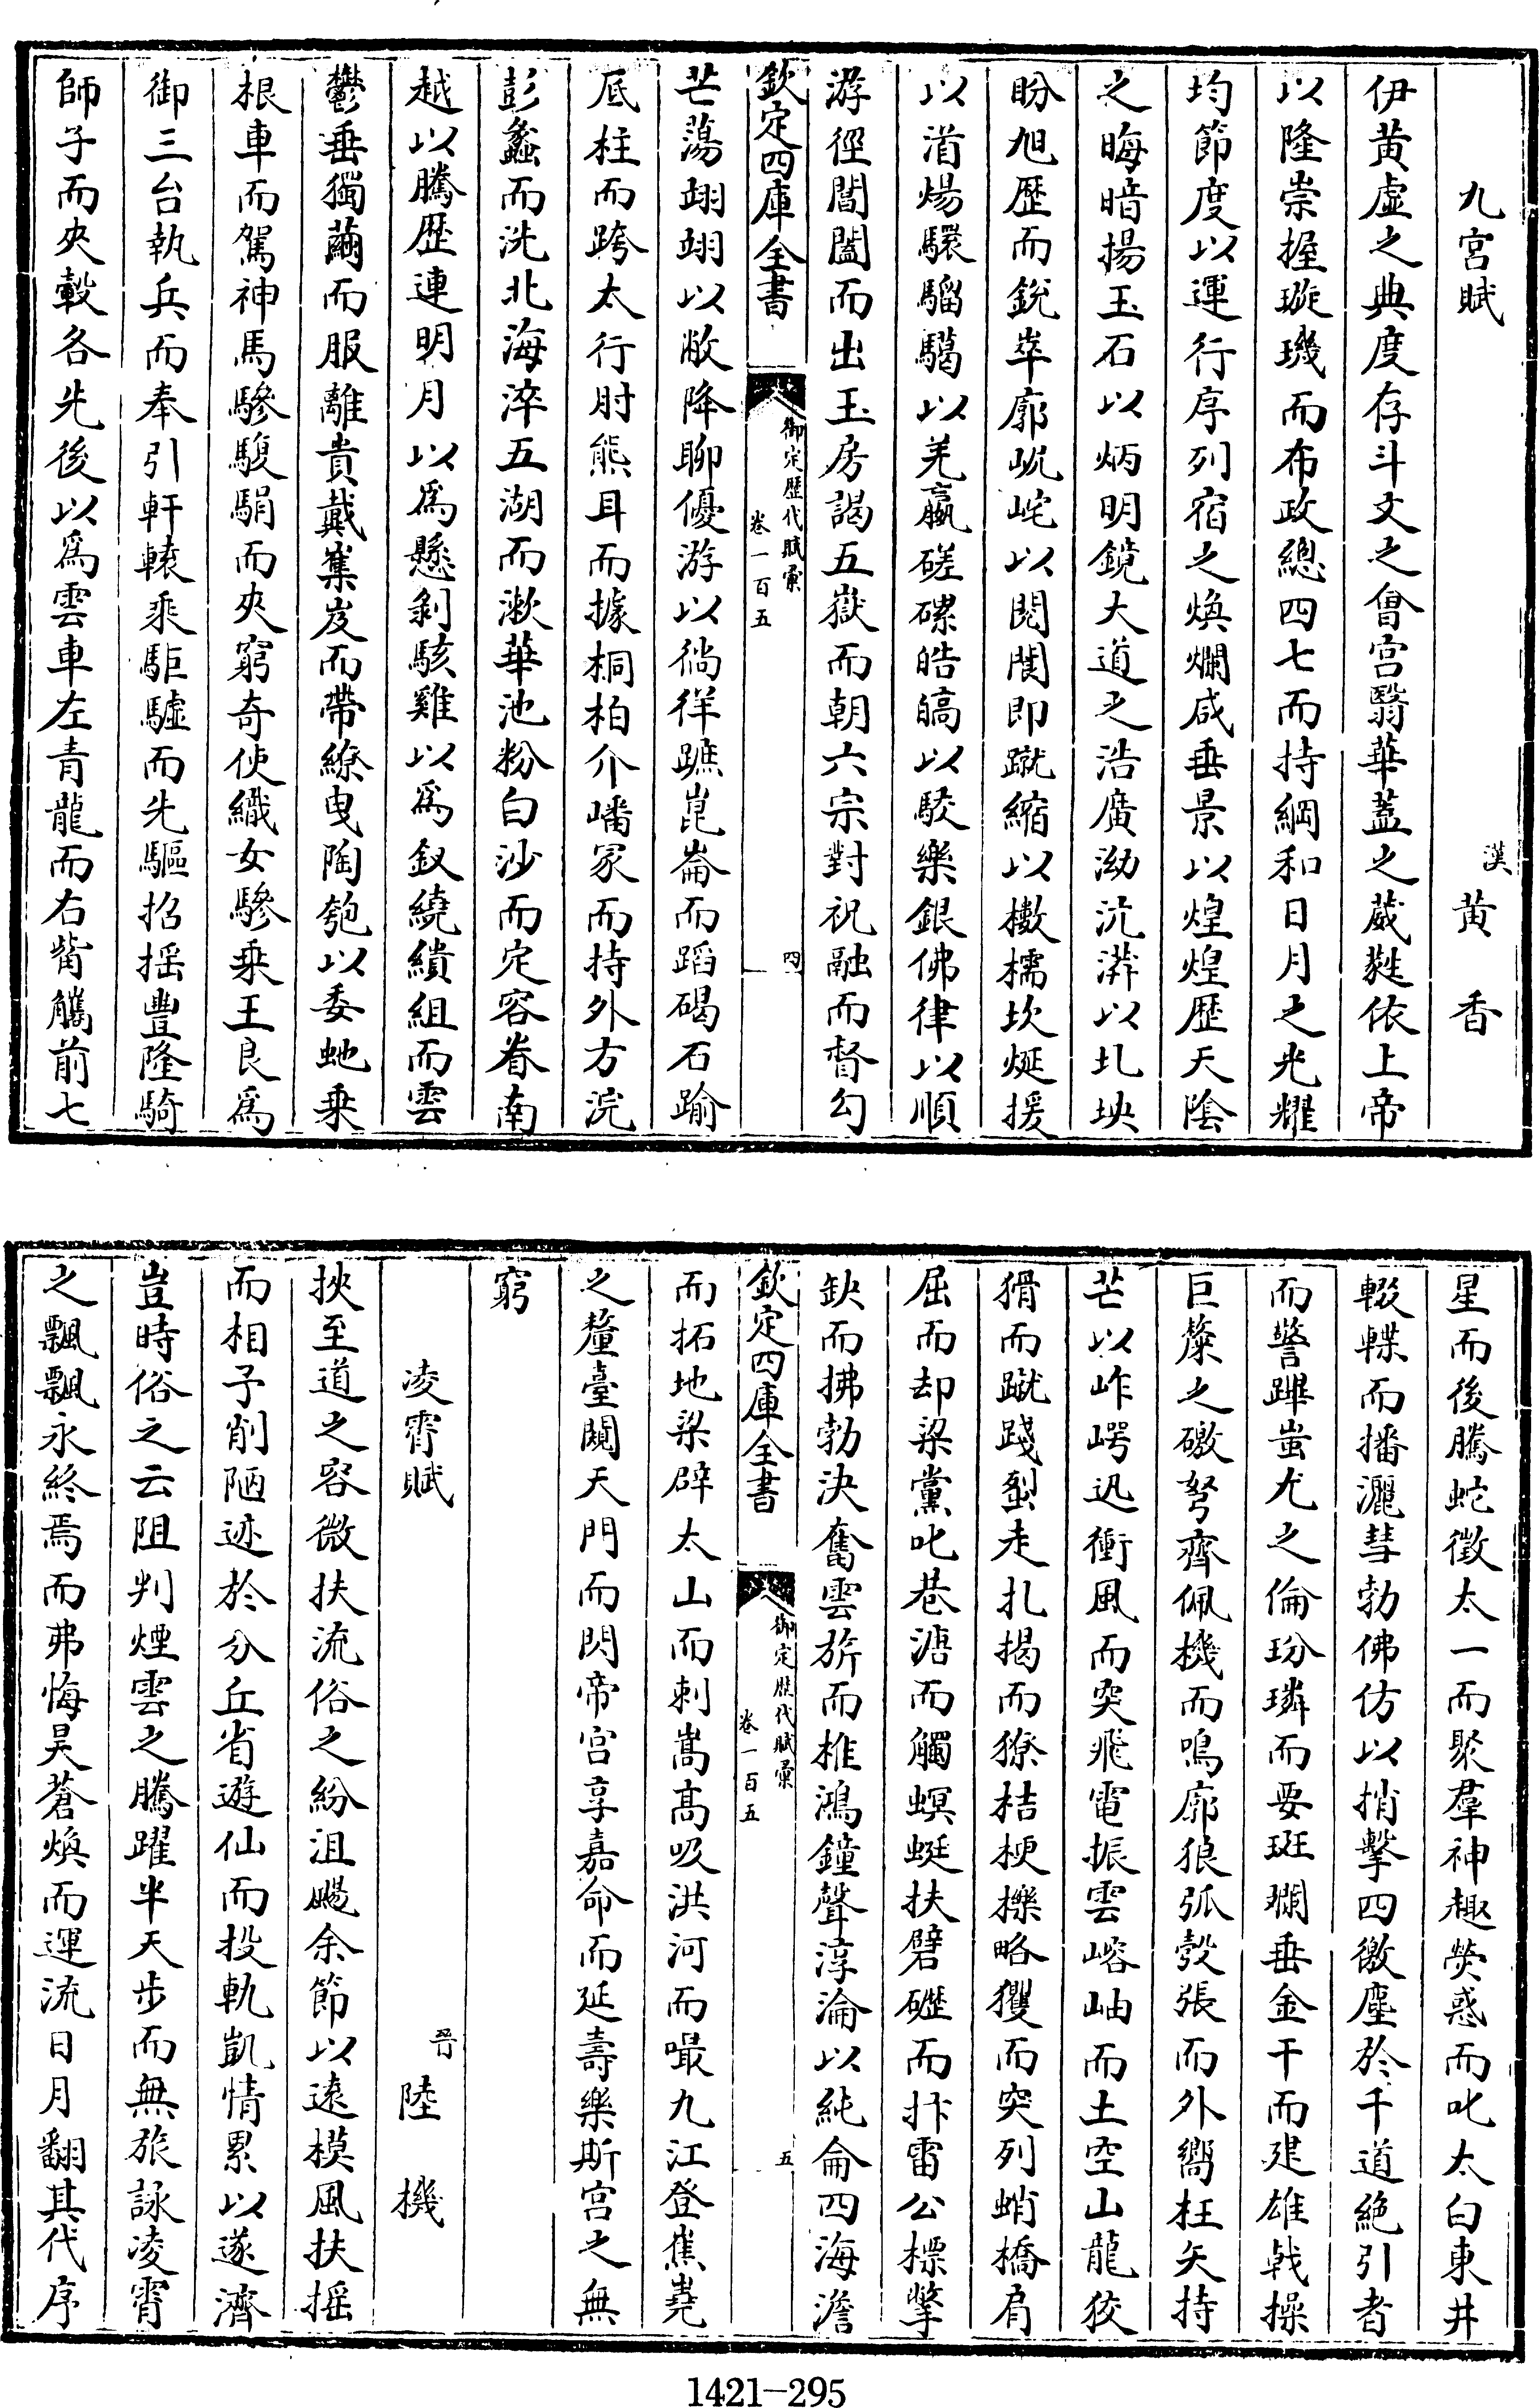 九宮賦
漢黃香
伊黃虛之典度存斗文之會宮翳華蓋之葳蕤依上帝
以隆崇握璇璣而布政總四七而持綱和日月之光耀
均節度以運行序列宿之煥爛咸垂景以煌煌歷天陰
之晦暗揚玉石以炳明鏡大道之浩廣泑沆漭以圠坱
盼旭歷而銳崒廓岏㞳以閱閳即蹴縮以檄檽坎烻援
以湝煬驏騮驈以羌蠃磋磥皓皜以駮樂銀佛律以順
游徑閶闔而出玉房謁五嶽而朝六宗對祝融而督勾
欽定四庫全書
御定歷代賦彙
卷一百五
四
芒蕩翊翊以敝降聊優游以徜徉蹠崑崙而蹈碣石踰
底柱而跨太行肘熊耳而據桐柏介嶓冢而持外方浣
彭蠡而洗北海淬五湖而漱華池粉白沙而定容眷南
越以騰歷連明月以為懸剝駭雞以為釵繞繢組而雲
鬱垂獨繭而服離貴戴嶪岌而帶繚曳陶匏以委虵乗
根車而駕神馬驂駿騆而夾窮奇使織女驂乗王良為
御三台執兵而奉引軒轅乘駏驉而先驅招搖豐隆騎
師子而夾轂各先後以為雲車左青龍而右觜觿前七
星而後騰蛇徵太一而聚羣神趣熒惑而叱太白東井
輟轈而播灑彗勃佛仿以捎擊四徼塵於千道絕引者
而警蹕蚩尤之倫玢璘而要斑斕垂金干而建雄戟操
巨斄之礉弩齊佩機而鳴廓狼弧彀張而外嚮枉矢持
芒以岞崿迅衝風而突飛電振雲峆岫而土空山龍狡
猾而蹴踐蜇走扎揭而獠桔梗擽略玃而突列蛸橋肩
屈而却梁黨叱巷溏而觸螟蜓扶礕礰而抃雷公摽擎
缺而拂勃決奮雲旂而椎鴻鐘聲淳淪以純侖四海澹
欽定四庫全書
御定歷代賦彙
卷一百五
五
而拓地梁辟太山而刺嵩高吸洪河而嘬九江登焦嶤
之釐臺闚天門而閃帝宮享嘉命而延壽樂斯宮之無
窮
凌霄賦
晉陸機
挾至道之容微扶流俗之紛沮颺余節以遠模風扶搖
而相予削陋迹於分丘省遊仙而投軌凱情累以遂濟
豈時俗之云阻判煙雲之騰躍半天步而無旅詠凌霄
之飄飄永終焉而弗悔昊蒼煥而運流日月翻其代序
1421-295